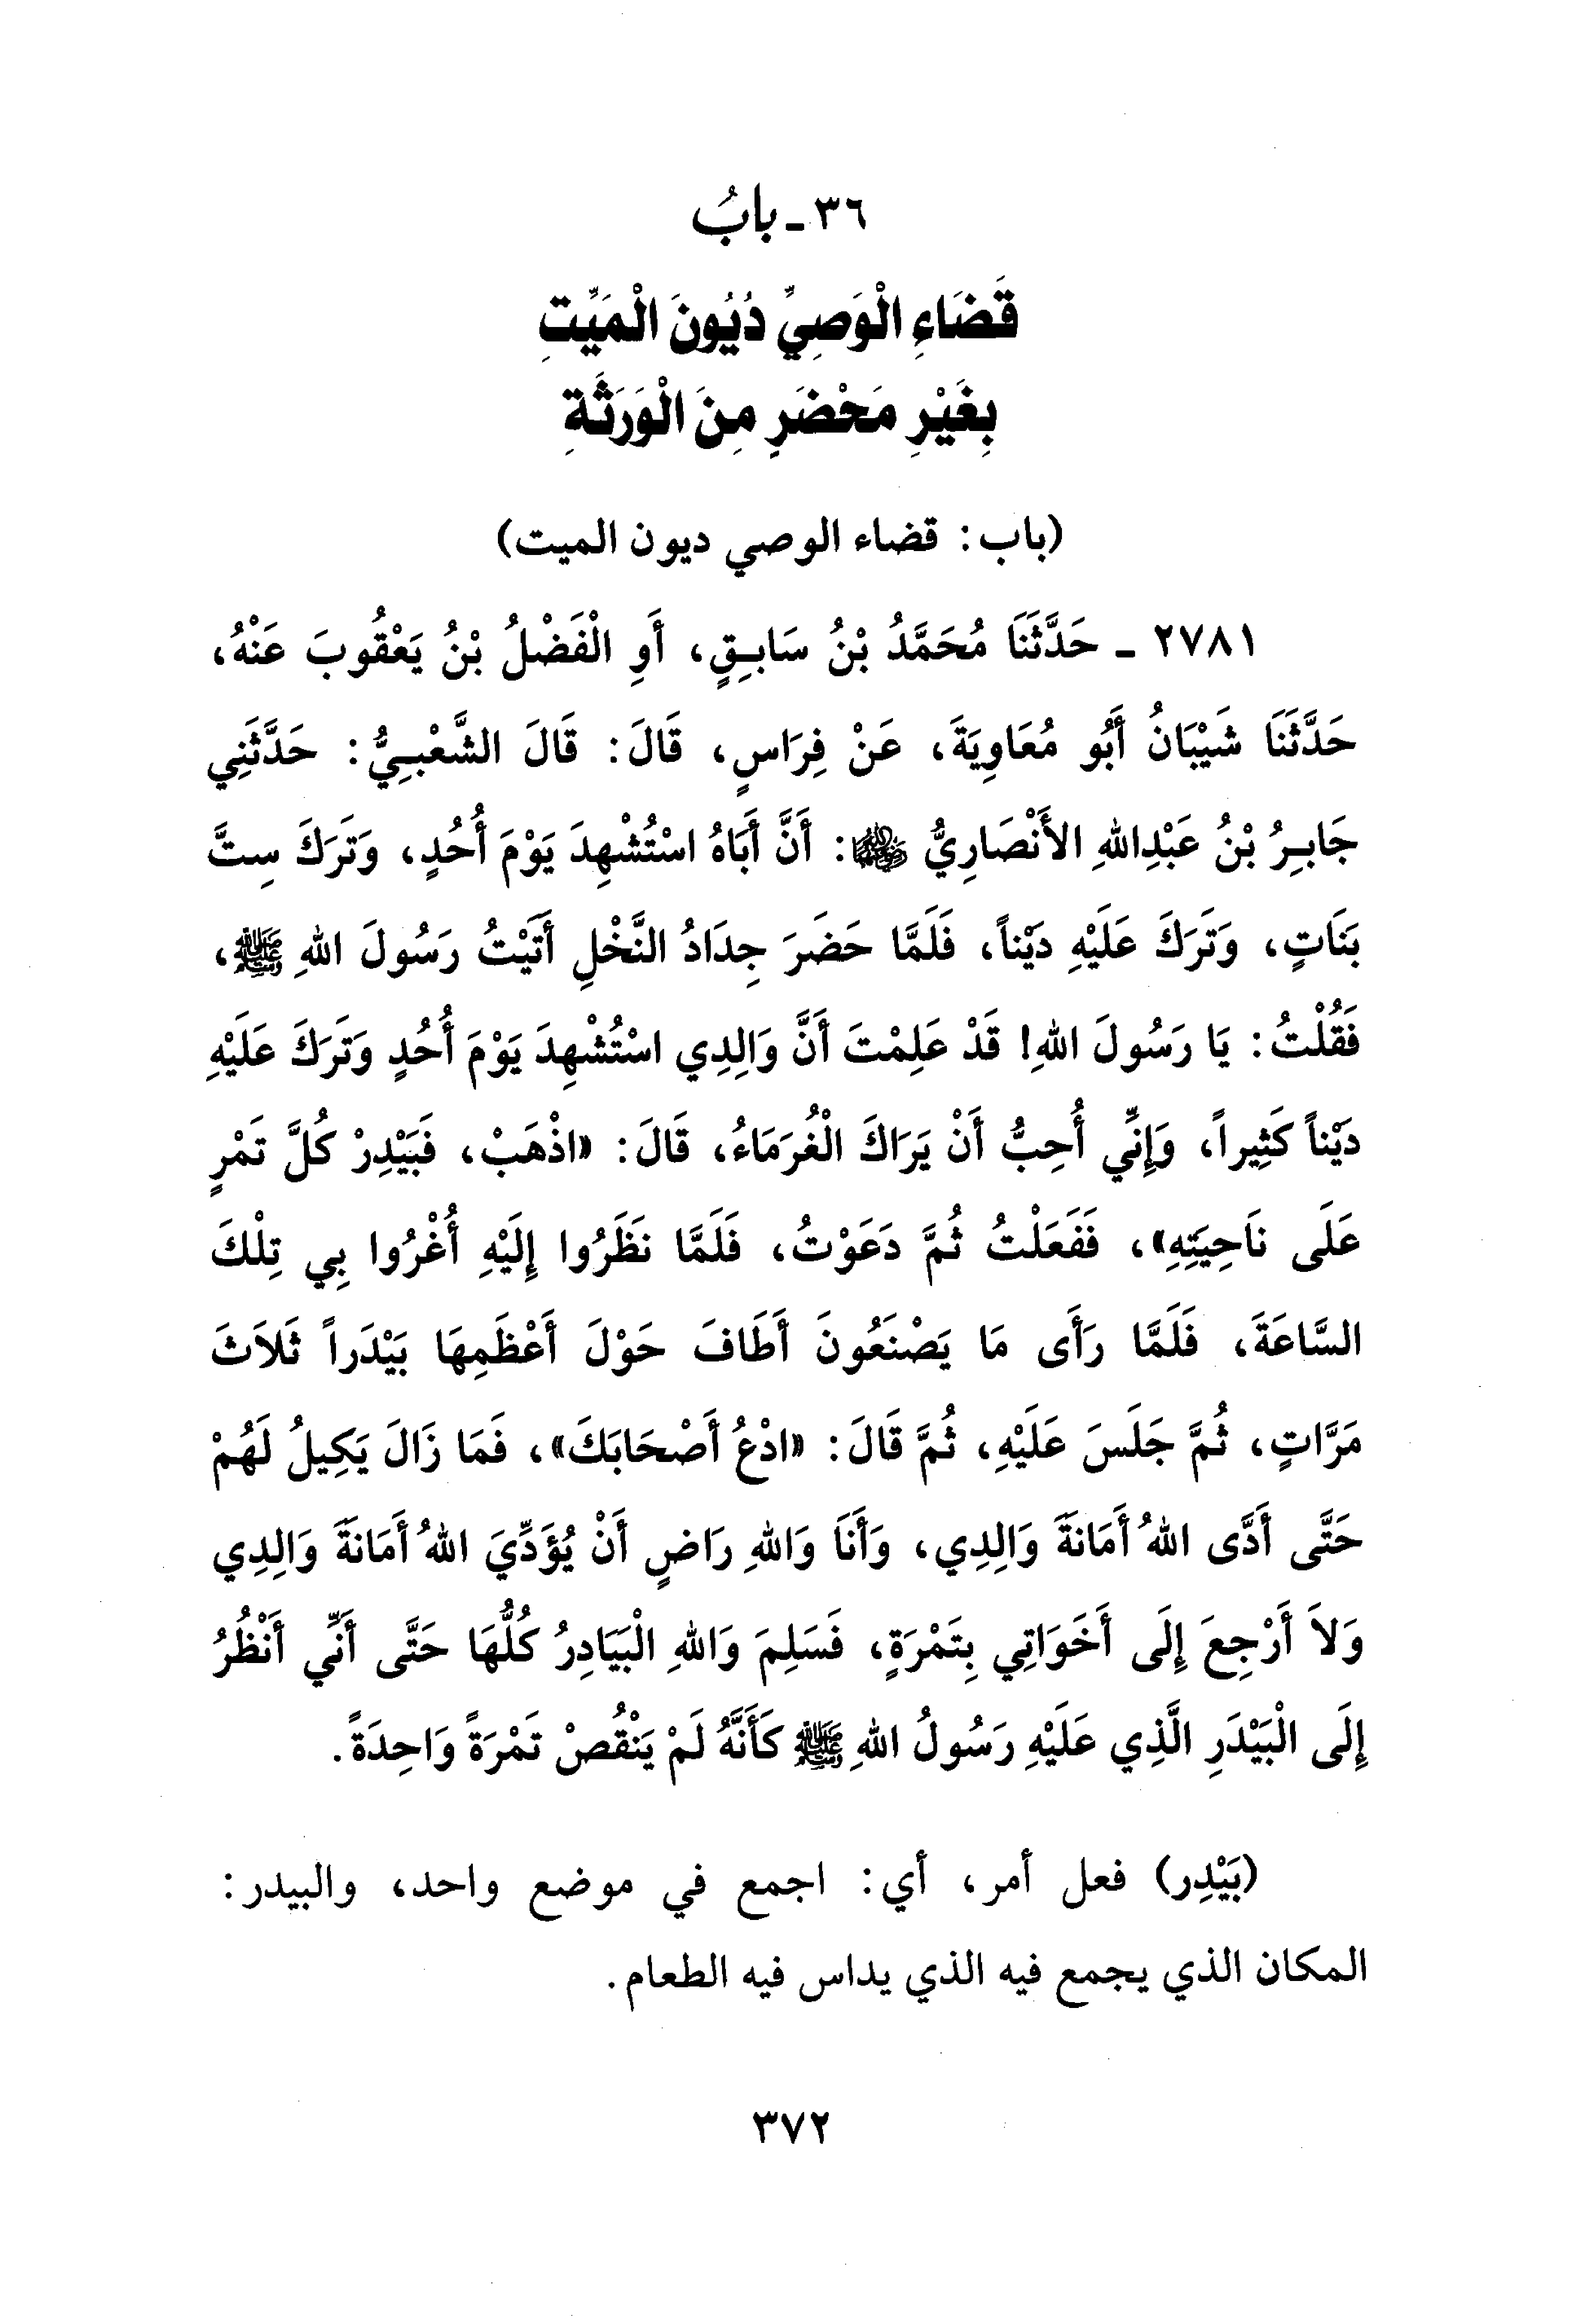 ٣٦ - بابُ
قَضَاءِ الْوَصِيِّ دُيُونَ الْمَيِّتِ
بِغَيْرِ مَحْضَرٍ مِنَ الْوَرَثَةِ
(باب: قضاء الوصي ديون الميت)
٢٧٨١ - حَدَّثَنَا مُحَمَّدُ بْنُ سَابِقٍ، أَوِ الْفَضْلُ بْنُ يَعْقُوبَ عَنْهُ،
حَدَّثَنَا شَيْبَانُ أَبُو مُعَاوِيَةَ، عَنْ فِرَاسٍ، قَالَ: قَالَ الشَّعْبِيُّ: حَدَّثَنِي
جَابِرُ بْنُ عَبْدِاللهِ الأَنْصَارِيُّ رضي الله عنه: أَنَّ أَبَاهُ اسْتُشْهِدَ يَوْمَ أُحُدٍ، وَتَرَكَ سِتَّ
بَنَاتٍ، وَتَرَكَ عَلَيْهِ دَيْناً، فَلَمَّا حَضَرَ جِدَادُ النَّخْلِ أَتَيْتُ رَسُولَ اللهِ ﷺ،
فَقُلْتُ: يَا رَسُولَ اللهِ! قَدْ عَلِمْتَ أَنَّ وَالِدِي اسْتُشْهِدَ يَوْمَ أُحُدٍ وَتَرَكَ عَلَيْهِ
دَيْناً كَثِيراً، وَإِنِّي أُحِبُّ أَنْ يَرَاكَ الْغُرَمَاءُ، قَالَ: «اذْهَبْ، فَبَيْدِرْ كُلَّ تَمْرٍ
عَلَى نَاحِيَتِهِ»، فَفَعَلْتُ ثُمَّ دَعَوْتُ، فَلَمَّا نَظَرُوا إِلَيْهِ أُغْرُوا بِي تِلْكَ
السَّاعَةَ، فَلَمَّا رَأَى مَا يَصْنَعُونَ أَطَافَ حَوْلَ أَعْظَمِهَا بَيْدَراً ثَلاَثَ
مَرَّاتٍ، ثُمَّ جَلَسَ عَلَيْهِ، ثُمَّ قَالَ: «ادْعُ أَصْحَابَكَ»، فَمَا زَالَ يَكِيلُ لَهُمْ
حَتَّى أَدَّى اللهُ أَمَانَةَ وَالِدِي، وَأَنَا وَاللهِ رَاضٍ أَنْ يُؤَدِّيَ اللهُ أَمَانَةَ وَالِدِي
وَلاَ أَرْجِعَ إِلَى أَخَوَاتِي بِتَمْرَةٍ، فَسَلِمَ وَاللهِ الْبَيَادِرُ كُلُّهَا حَتَّى أَنِّي أَنْظُرُ
إِلَى الْبَيْدَرِ الَّذِي عَلَيْهِ رَسُولُ اللهِ ﷺ كَأَنَّهُ لَمْ يَنْقُصْ تَمْرَةً وَاحِدَةً.
(بَيْدِر) فعل أمر، أي: اجمع في موضع واحد، والبيدر:
المكان الذي يجمع فيه الذي يداس فيه الطعام.
٣٧٢